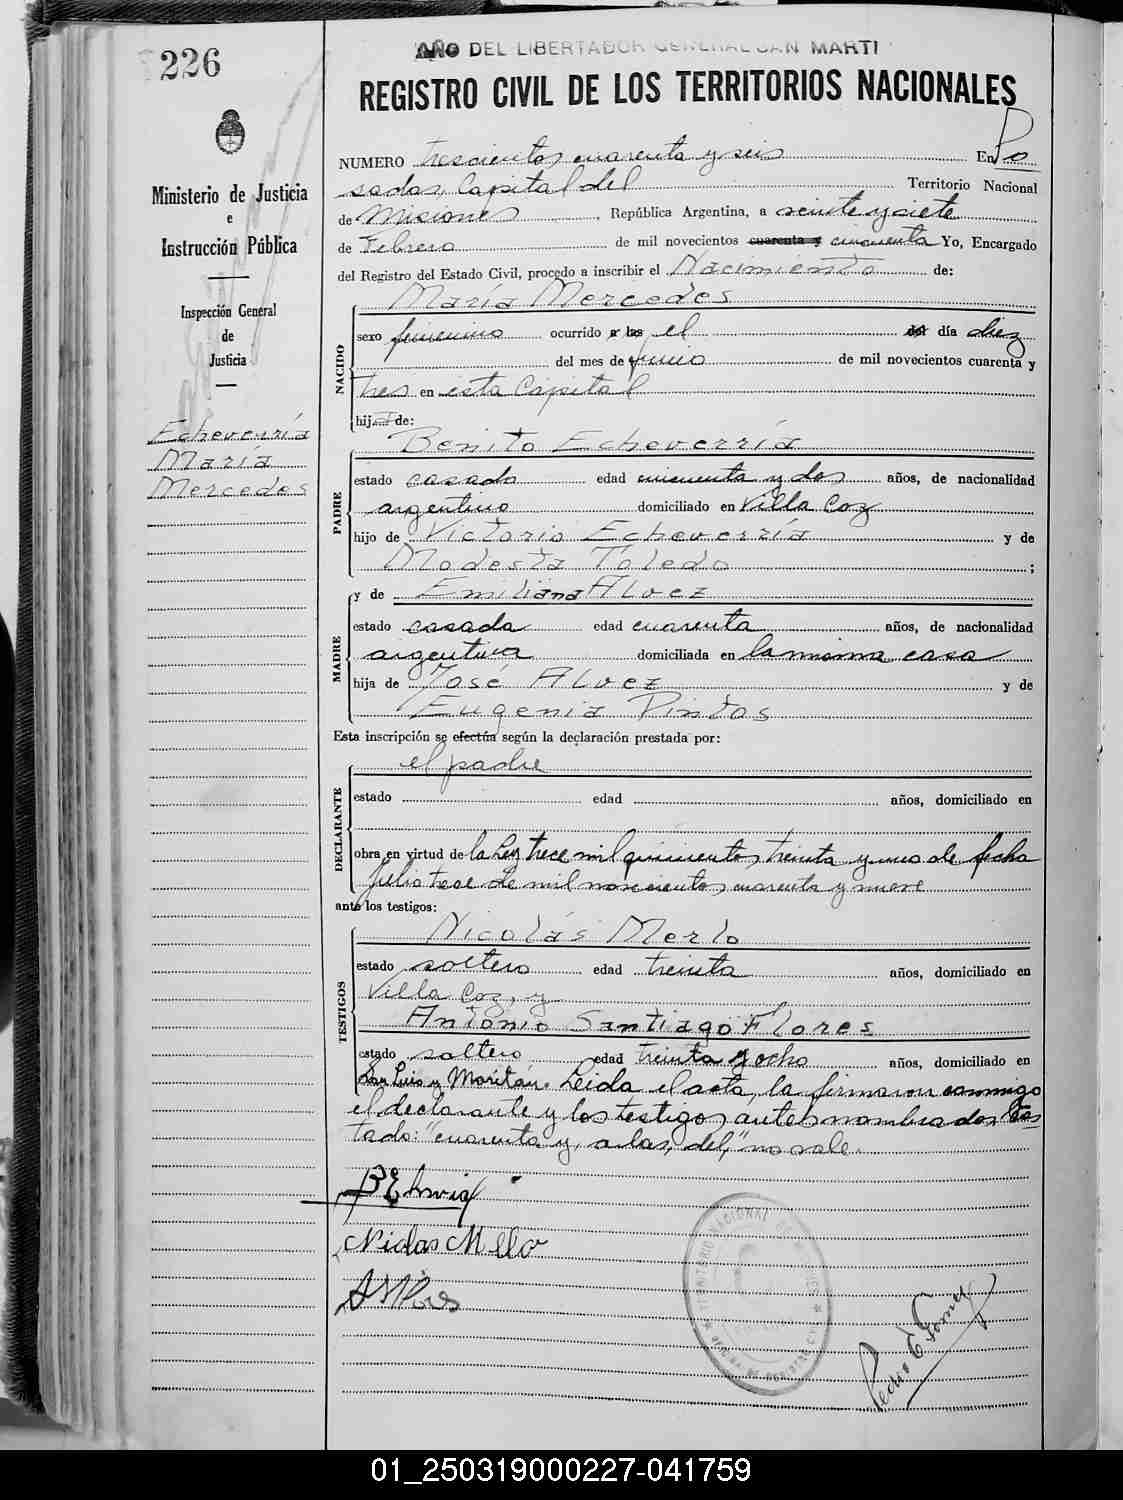 226
AÑO DEL LIBERTADOR GENERAL SAN MARTI
REGISTRO CIVIL DE LOS TERRITORIOS NACIONALES
Ministerio de Justicia
e
Instrucción Pública
Inspección General
de
Justicia
Echeverría
María
Mercedes
NUMERO trescientos cuarenta y seis En Po
sadas, Capital del Territorio Nacional
de Misiones, República Argentina, a veinte y siete
de Febrero de mil novecientos cuarenta y cincuenta Yo, Encargado
del Registro del Estado Civil, procedo a inscribir el Nacimiento de:
NACIDO
María Mercedes
sexo femenino ocurrido a las el del día diez
del mes de junio de mil novecientos cuarenta y
tres en esta Capital
hija de:
PADRE
Benito Echeverría
estado casado edad cincuenta y dos años, de nacionalidad
argentino domiciliado en Villa Coz
hijo de Victorio Echeverría y de
Modesta Toledo;
MADRE
y de Emiliana Alvez
estado casada edad cuarenta años, de nacionalidad
argentina domiciliada en la misma casa
hija de José Alvez y de
Eugenia Pintos
Esta inscripción se efectúa según la declaración prestada por:
DECLARANTE
el padre
estado edad años, domiciliado en
obra en virtud de la Ley trece mil quinientos treinta y uno de fecha
Julio trece de mil novecientos cuarenta y nueve
ante los testigos:
TESTIGOS
Nicolás Merlo
estado soltero edad treinta años, domiciliado en
Villa Coz, y
Antonio Santiago Flores
estado soltero edad treinta y ocho años, domiciliado en
San Luis y Moritán. Leida el acta, la firmaron conmigo
el declarante y los testigos antes nombrados. Tes
tado: "cuarenta y, a las, del," no vale.
Pedro E Gomez
TERRITORIO NACIONAL DE MISIONES